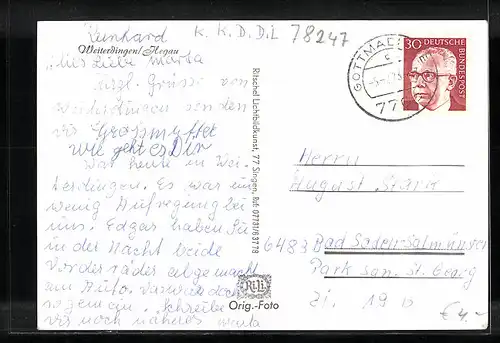 Reinhard
K. K. D. D. L 78247
Weiterdingen/Hegau
liebe Marta
herzl. Grüsse von
Weiterdingen senden
wir Grossmutter
wie geht es Dir
War heute in Wei-
terdingen. Es war ein
wenig Aufregung bei
uns. Edgar haben Sie
in der Nacht beide
Vorderräder abgemacht
am Auto. Das war doch
gemein. Schreibe
wir noch näheres
Ritschel Lichtbildkunst, 77 Singen, Ruf: 07731/63778
RiLi
Orig.-Foto
GOTTMAD
c
770
30 DEUTSCHE
BUNDESPOST
Herrn
August Stark
6483 Bad Soden-Salmünster
Park san. St. Georg
Zi. 19
€ 4.-